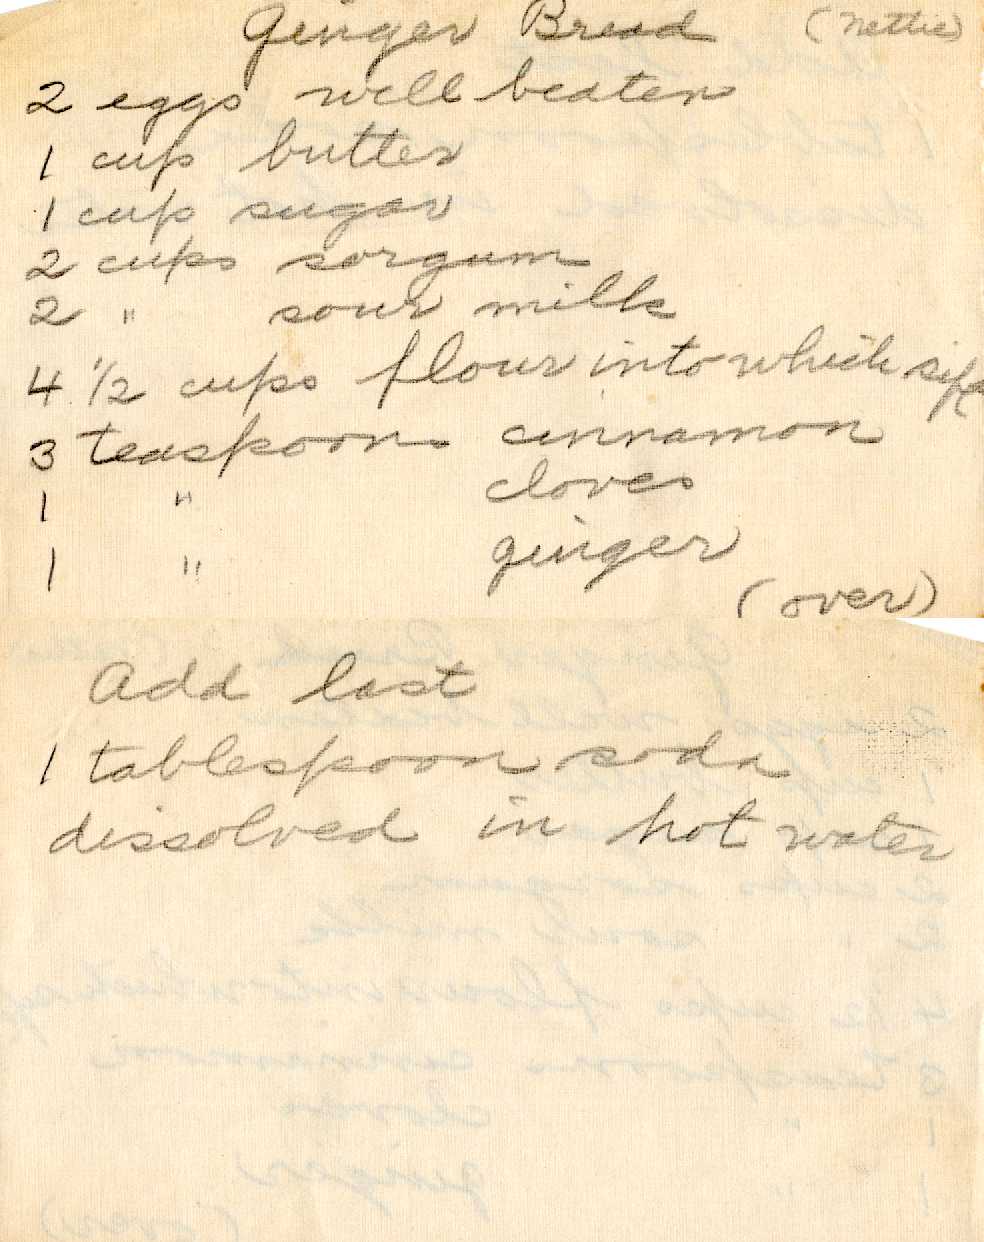 Ginger Bread (Nettie)
2 eggs well beaten
1 cup butter
1 cup sugar
2 cups sorgum
2 " sour milk
4 1/2 cups flour into which sift
3 teaspoons cinnamon
1 " cloves
1 " ginger
(over)
Add last
1 tablespoon soda
dissolved in hot water